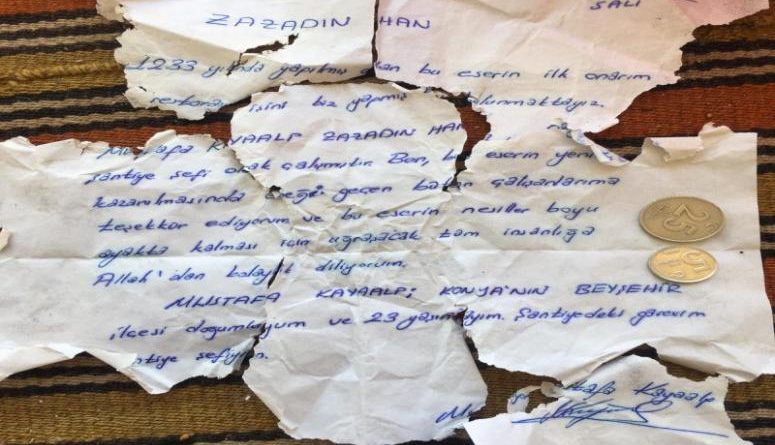 SALI
ZAZADIN HAN
1233 yılında yapılmış olan bu eserin ilk onarım
işini biz yapmış
Mustafa KAYAALP ZAZADIN HAN
şantiye şefi olarak çalışmıştır Ben, bu eserin yeni
kazanılmasında emeği geçen bütün çalışanlarıma
teşekkür ediyorum ve bu eserin nesiller boyu
ayakta kalması için uğraşacak tüm insanlığa
Allah'dan kolaylık diliyorum.
MUSTAFA KAYAALP; KONYA'NIN BEYŞEHİR
ilçesi doğumluyum ve 23 yaşındayım. Şantiyedeki görevim
şefiyim.
Kayaalp
25
5